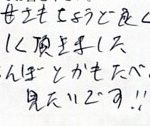 甘さもちょうど良く
しく頂きました
んぼとかもたべ
見たいです!!